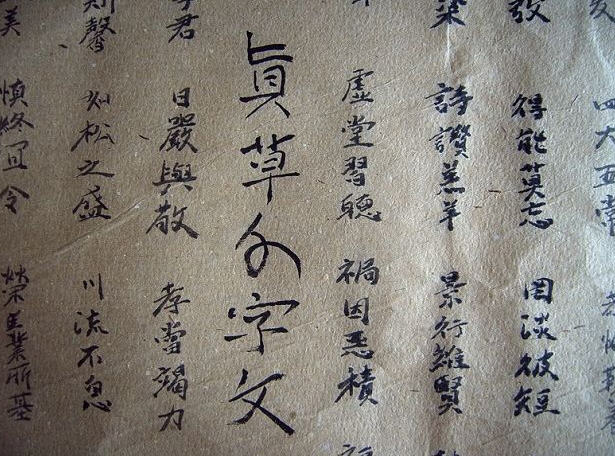 四大五常 恭惟鞠養
改 得能莫忘 罔談彼短
染 詩讚羔羊 景行維賢
虛堂習聽 禍因惡積
眞草千字文
君 曰嚴與敬 孝當竭力
斯馨 如松之盛 川流不息
美 慎終宜令 榮業所基